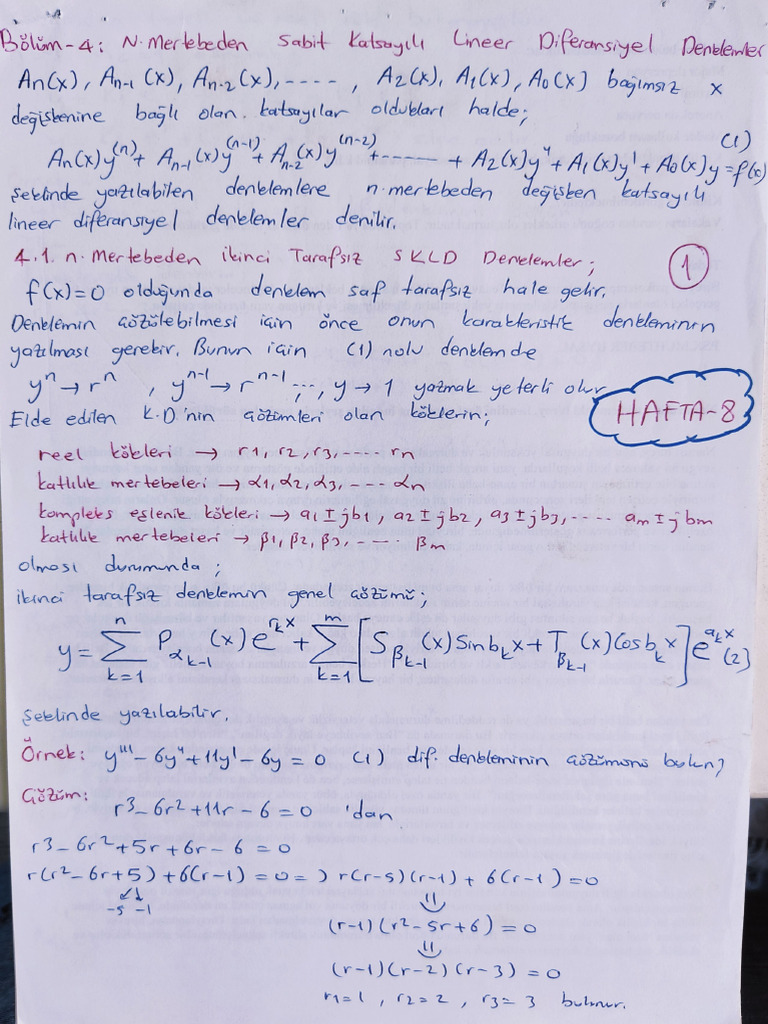 Bölüm-4: N.Mertebeden Sabit Katsayılı Lineer Diferansiyel Denklemler
An(x), An-1(x), An-2(x),----, A2(x), A1(x), A0(x) bağımsız x
değişkenine bağlı olan katsayılar oldukları halde;
An(x)y^(n) + An-1(x)y^(n-1) + An-2(x)y^(n-2) +-----+ A2(x)y'' + A1(x)y' + A0(x)y = f(x) (1)
şeklinde yazılabilen denklemlere n.mertebeden değişken katsayılı
lineer diferansiyel denklemler denilir.
4.1. n.Mertebeden ikinci Tarafsız SKLD Denklemler;
1
f(x)=0 olduğunda denklem sağ tarafsız hale gelir.
Denklemin çözülebilmesi için önce onun karakteristik denkleminin
yazılması gerekir. Bunun için (1) nolu denklemde
y^n → r^n , y^n-1 → r^n-1 ;--; y → 1 yazmak yeterli olur.
HAFTA-8
Elde edilen K.D'nin çözümleri olan köklerin;
reel kökleri → r1, r2, r3,---- rn
katlılık mertebeleri → α1, α2, α3,---- αn
kompleks eşlenik kökleri → a1±jb1, a2±jb2, a3±jb3,---- am±jbm
katlılık mertebeleri → β1, β2, β3,---- βm
olması durumunda;
ikinci tarafsız denklemin genel çözümü;
y = Σ_{k=1}^{n} P_{αk-1}(x)e^{rkx} + Σ_{k=1}^{m} [S_{βk-1}(x)Sinbkx + T_{βk-1}(x)Cosbkx]e^{akx} (2)
şeklinde yazılabilir.
Örnek: y''' - 6y'' + 11y' - 6y = 0 (1) dif. denkleminin çözümünü bulun?
Çözüm:
r³ - 6r² + 11r - 6 = 0 'dan
r³ - 6r² + 5r + 6r - 6 = 0
r(r² - 6r + 5) + 6(r-1) = 0 => r(r-5)(r-1) + 6(r-1) = 0
-5 -1
(r-1)(r² - 5r + 6) = 0
(r-1)(r-2)(r-3) = 0
r1=1, r2=2, r3=3 bulunur.